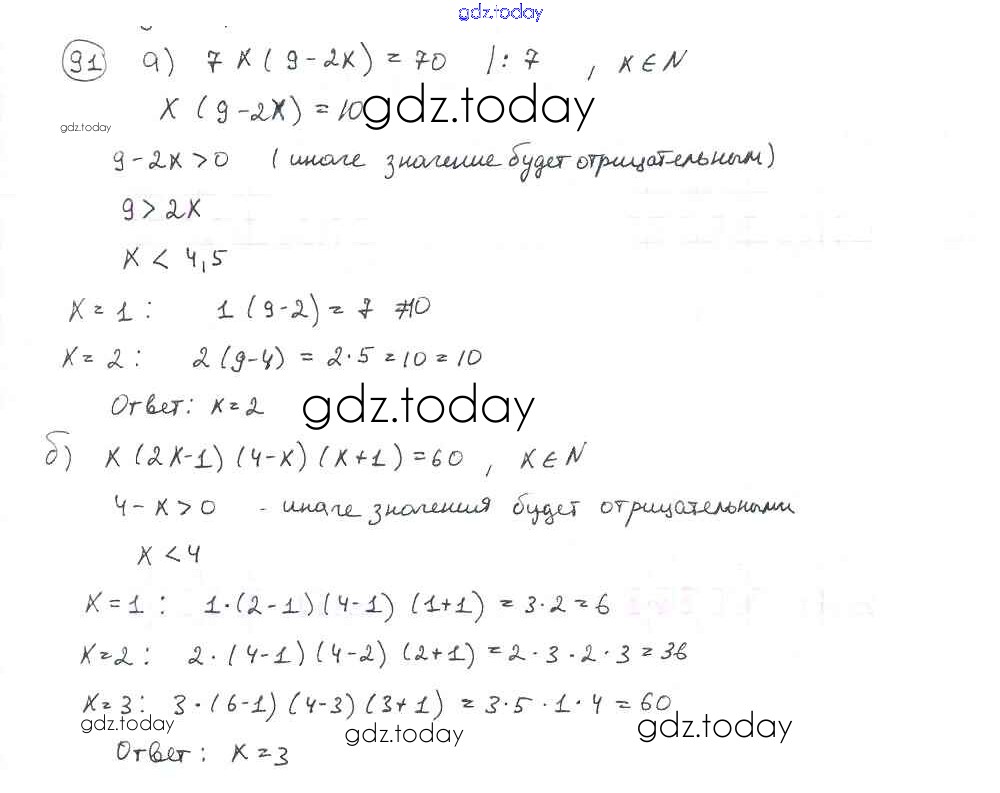 gdz.today
91 а) 7x(9-2x)=70 |:7 , x∈N
x(9-2x)=10 gdz.today
gdz.today
9-2x>0 (иначе значение будет отрицательным)
9>2x
x<4,5
x=1: 1(9-2)=7 ≠10
x=2: 2(9-4)=2·5=10=10
Ответ: x=2 gdz.today
б) x(2x-1)(4-x)(x+1)=60, x∈N
4-x>0 - иначе значения будет отрицательными
x<4
x=1: 1·(2-1)(4-1)(1+1)=3·2=6
x=2: 2·(4-1)(4-2)(2+1)=2·3·2·3=36
x=3: 3·(6-1)(4-3)(3+1)=3·5·1·4=60
gdz.today gdz.today gdz.today
Ответ: x=3